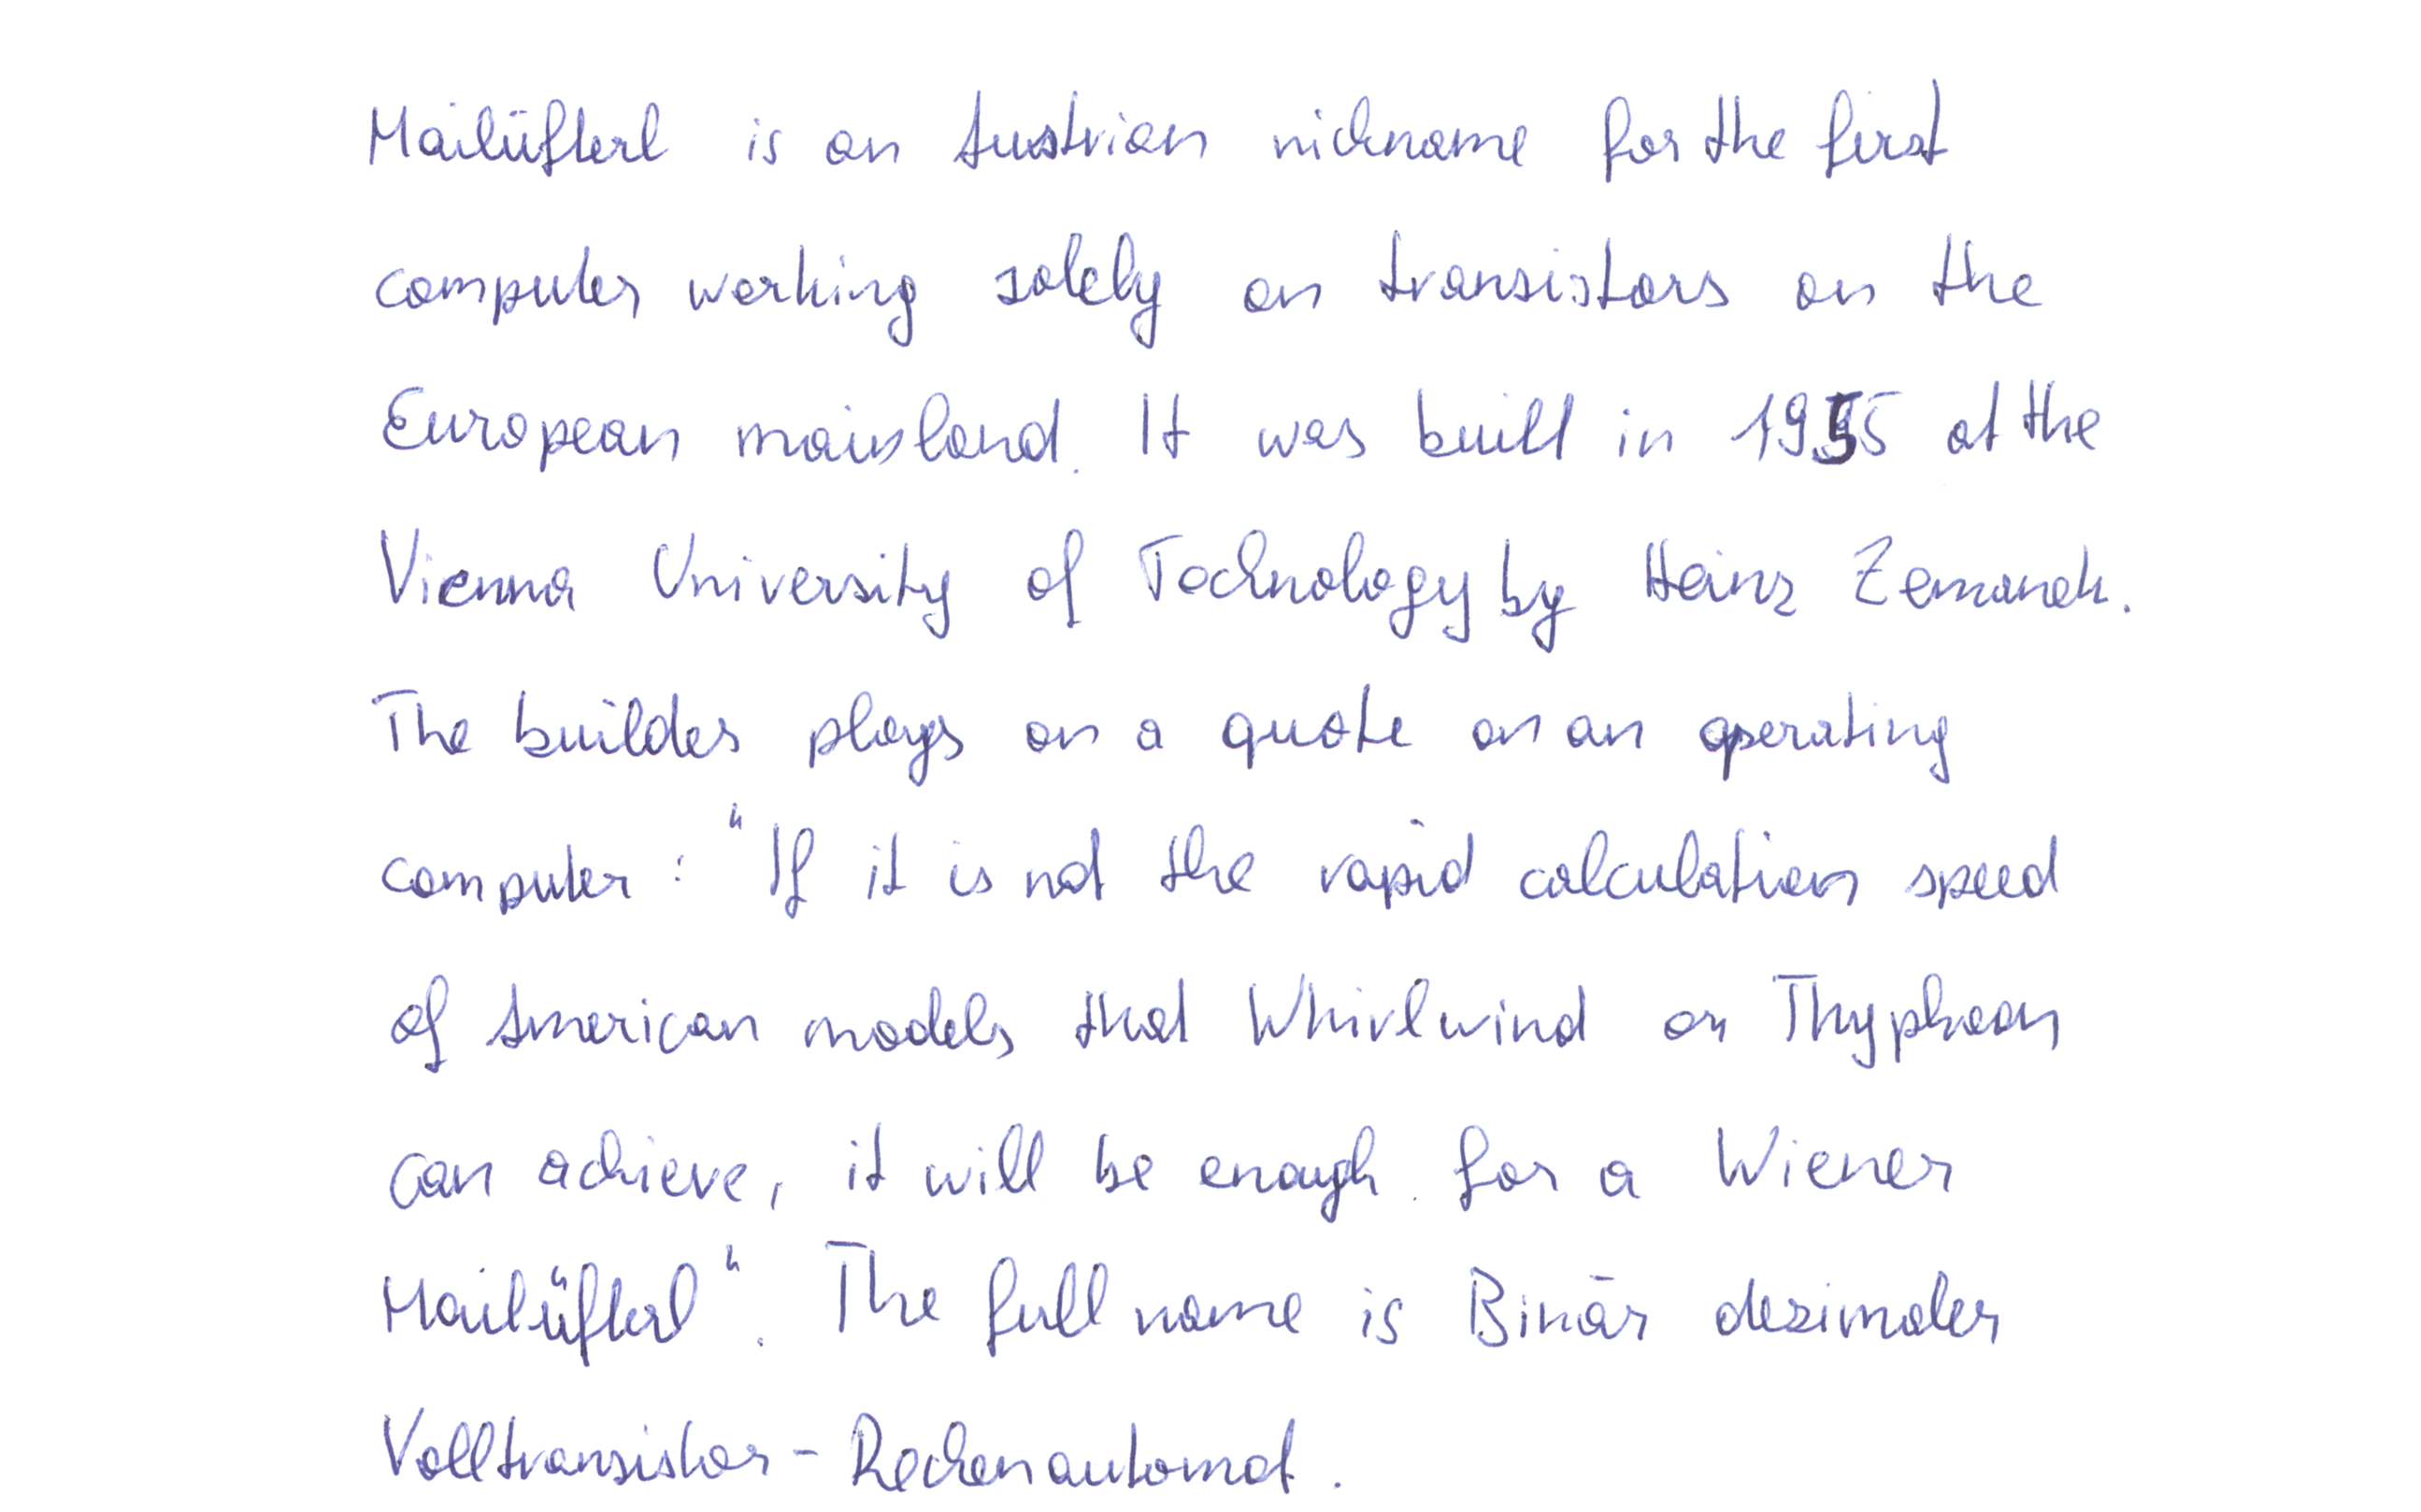 Mailüfterl is an Austrian nickname for the first
computer working solely on transistors on the
European mainland. It was built in 1955 at the
Vienna University of Technology by Heinz Zemanek.
The builder plays on a quote on an operating
computer: "If it is not the rapid calculation speed
of American models that Whirlwind or Thyphoon
can achieve, it will be enough for a Wiener
Mailüfterl". The full name is Binär dezimaler
Volltransistor-Rechenautomat.